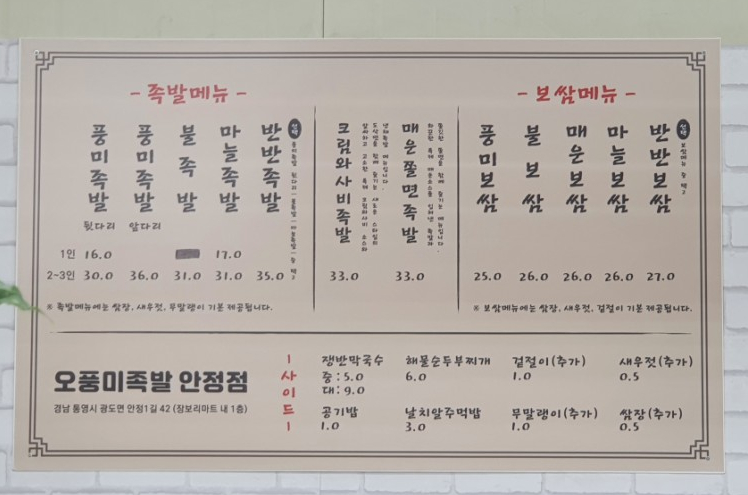 - 족발메뉴 -
풍미족발
뒷다리
풍미족발
앞다리
불족발
마늘족발
반반족발
선택
1인 16.0 17.0
2~3인 30.0 36.0 31.0 31.0 35.0
※ 족발메뉴에는 쌈장, 새우젓, 무말랭이 기본 제공됩니다.
크림와사비족발
33.0
매운쫄면족발
33.0
- 보쌈메뉴 -
풍미보쌈
불보쌈
매운보쌈
마늘보쌈
반반보쌈
선택
보쌈메뉴 중 택2
25.0 26.0 26.0 26.0 27.0
※ 보쌈메뉴에는 쌈장, 새우젓, 겉절이 기본 제공됩니다.
오풍미족발 안정점
경남 통영시 광도면 안정1길 42 (장보리마트 내 1층)
ㅣ사이드ㅣ
쟁반막국수
중 : 5.0
대 : 9.0
해물순두부찌개
6.0
겉절이(추가)
1.0
새우젓(추가)
0.5
공기밥
1.0
날치알주먹밥
3.0
무말랭이(추가)
1.0
쌈장(추가)
0.5